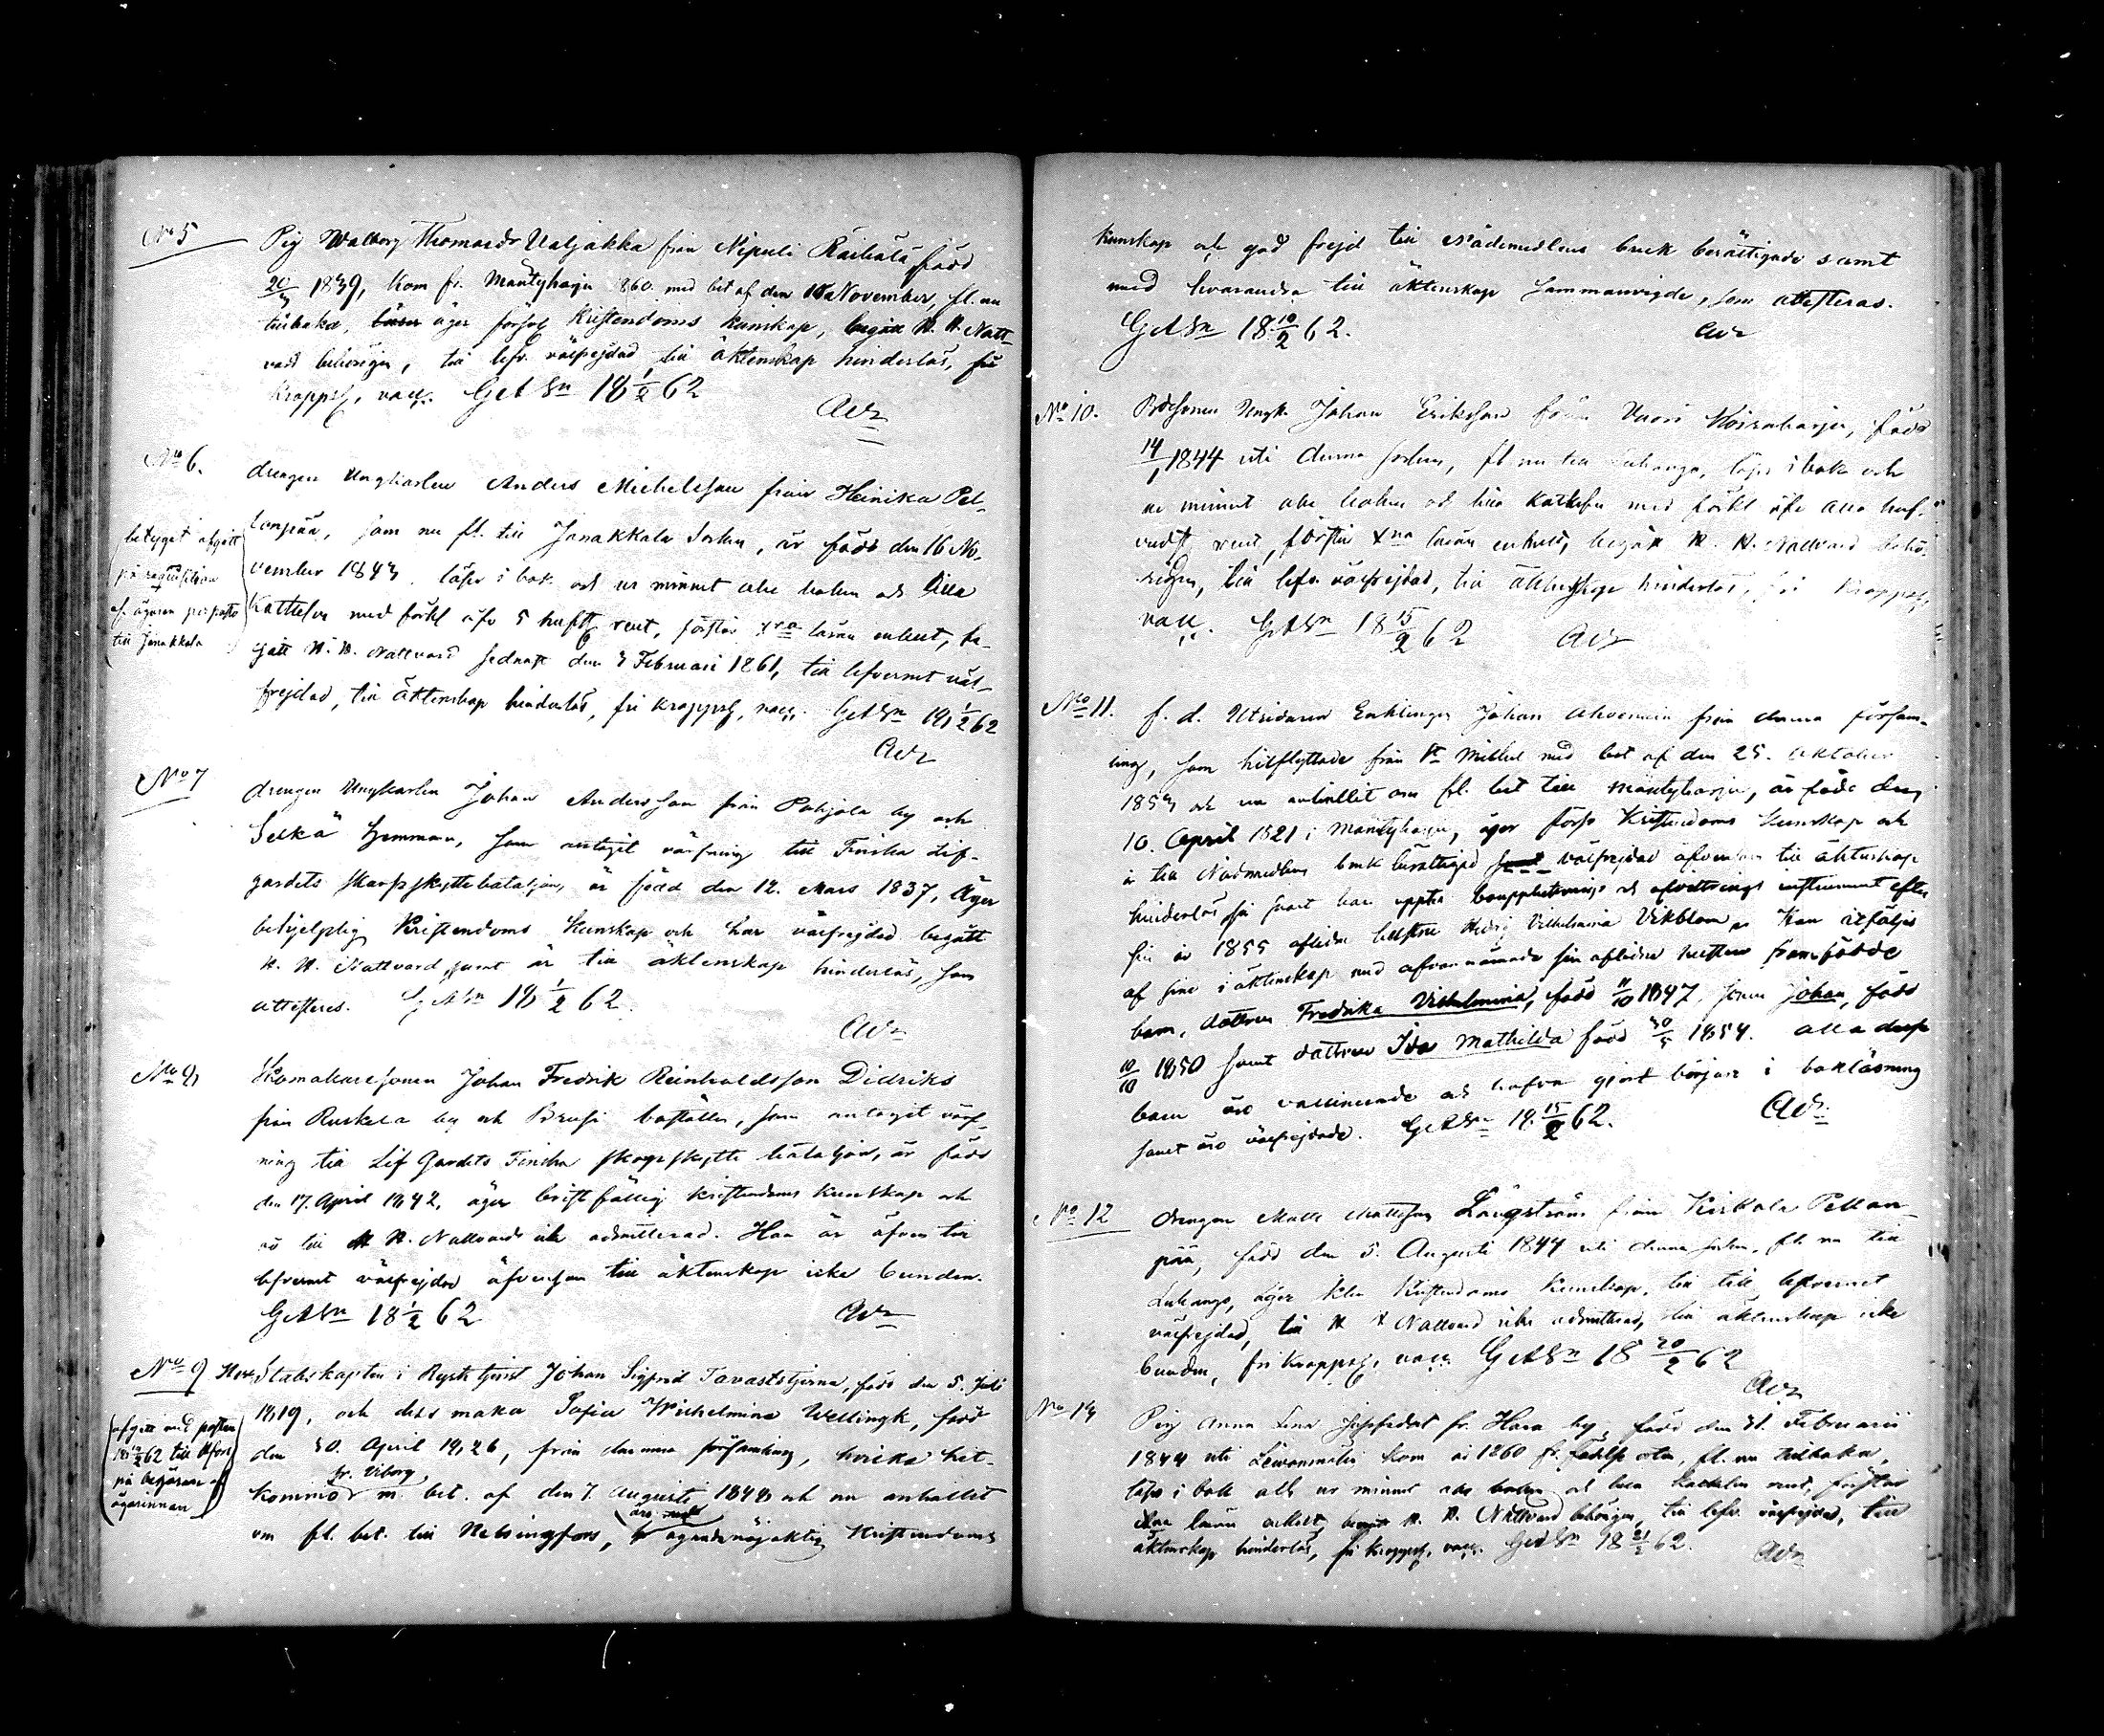 No 5
Pig Walborg Thomasdr Valjakka från Nipuli Räihälä, född
20/3 1839, kom fr. Mäntyharju 1860 med bet af den 18 November, fl. nu
tillbaka, äger förfos Kristendoms kunskap, begått H. H. Natt-
vard behörigen, till lefv. välfrejdad, till äktenskap hinderlös, fri
kroppsf, vacc. GetSn 18 1/2 62
AWr
No 6.
drengen Ungkarlen Anders Michelsson från Heinika Pel-
lonpää, som nu fl. till Janakkala Sochn, är född den 16 No-
vember 1843. läser i bok och ur minnet abc boken och lilla
Katkesen med förkl öfv 5 hufst rent, förstår Xna läran enkelt, be-
gått H. H. Nattvard sednast den 3 Februari 1861, till lefvernet väl-
frejdad, till äktenskap hinderlös, fri kroppsf, vacc. GetSn 18 1/2 62
AWr
(betyget afgått
på requisition
af ägaren per posto
till Janakkala
No 7
drengen Ungkarlen Johan Andersson från Pohjola by och
Selkä hemman, som antagit värfning till Finska Lif-
gardets Skarpskyttebataljon, är född den 12. Mars 1837, Äger
behjelplig Kristendoms kunskap och har välfrejdad begått
H. H. Nattvard samt är till äktenskap hinderlös, som
attesteras. GetSn 18 1/2 62.
AWr
No 8
Johan Fredrik Reinholdsson Didriks
från Ruskela by och Brusi boställe, som antagit värf-
ning till Lif Gardets Finska Skarpskytte bataljon, är född
den 17. April 1842, äger bristfällig Kristendoms kunskap och
är till H. H. Nattvard ick admitterad. Han är äfven till
lefvernet välfrejdad äfvensom till äktenskap icke bunden.
GetSn 18 1/2 62
AWr
No 9 Herr Stabskapten i Rysk tjenst Johan Sigfrid Tavaststjerna, född den 5. Juli
1819, och dess maka Sofia Wilhelmina Wellingk, född
den 30. April 1826, från denna församling, hvilka hit-
fr. Viborg
kommo m. bet. af den 7. Augusti 1848 och nu anhållit
äro
om fl. bet. till Helsingfors, ägande nöjaktig Kristendoms
(afgått med posten
18 12/2 62 till Hfors
på begäran af
ägarinnan)
kunskap och god frejd till Nådemedlens bruk berättigade samt
med hvarandra till äktenskap sammanvigde, som attesteras.
GetSn 18 10/2 62.
AWr
No 10.
Ungk. Johan Eriksson från Vuori Koiraharju, född
14/1 1844 uti denna sochn, fl nu till Luhanga, läser i bok och
ur minnet abc boken och lilla Katkesen med förkl öfv alla huf-
rent, förstår Xna läran enkelt, begått H. H. Nattvard behö-
rigen, till lefv. välfrejdad, till äktenskap hinderlös, fri kroppsf,
vacc. GetSn 18 15/2 62 AWr
No 11.
f. d. Utridaren Enklingen Johan Ahvenain från denna försam-
ling, som hitflyttade från St Mickel med bet af den 25. Oktober
1853 och nu anhållit om fl. bet till Mäntyharju, är född den
16. April 1821 i Mäntyharju, äger förfs Kristendoms kunskap och
är till Nådmedlens bruk berättigad välfrejdad äfvensom till äktenskap
hinderlös, bouppteknings och afvittrings instrument efter
sin år 1855 aflidne hustru Hedvig Vilhelmina Vikblom. Han åtföljes
af sine i äktenskap med ofvannämnde sin aflidna hustru framfödde
barn, dottren Fredrika Vilhelmina, född 11/10 1847, sonen Johan, född
10/10 1850 samt dottren Ida Mathilda född 30/5 1854. alla dessa
barn äro vaccinerade och hafva gjort början i bokläsning
samt äro välfrejdade. GetSn 18 15/2 62.
AWr
No 12
drengen Matts Mattsson Långström från Kirkola Pellon-
pää, född den 5. Augusti 1844 uti denna sochn, fl. nu till
Luhango, äger klen Kristendoms kunskap, är till lefvernet
välfrejdad, till H H Nattvard icke admitterad, till äktenskap icke
bunden, fri kroppsf, vacc. GetSn 18 20/2 62
AWr
No 13
Pig Anna Lena Josefsdot fr. Hara by, född den 21. Februarii
1844 uti Leivonmäki kom år 1860 fr. fl. nu tillbaka,
läser i bok allt ur minnet abc boken och lilla Katkesen rent, förstår
Xna läran enkelt, begått H. H. Nattvard behörigen, till lefv. välfrejdad, till
äktenskap hinderlös, fri kroppsf, vacc. GetSn 18 21/2 62.
AWr